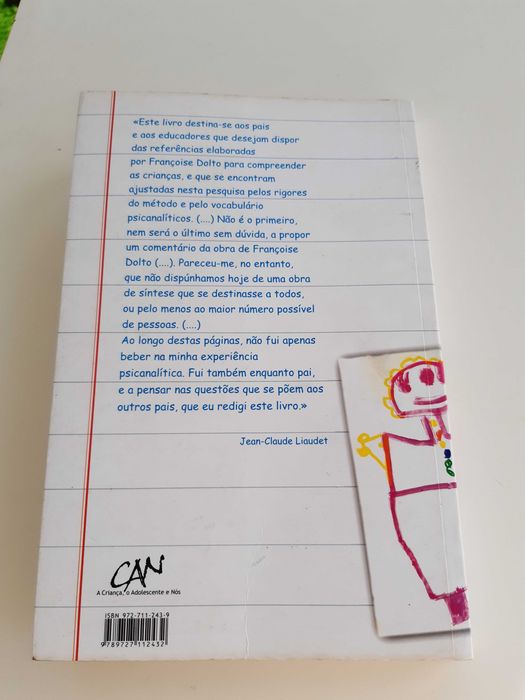 «Este livro destina-se aos pais
e aos educadores que desejam dispor
das referências elaboradas
por Françoise Dolto para compreender
as crianças, e que se encontram
ajustadas nesta pesquisa pelos rigores
do método e pelo vocabulário
psicanalíticos. (....) Não é o primeiro,
nem será o último sem dúvida, a propor
um comentário da obra de Françoise
Dolto (....). Pareceu-me, no entanto,
que não dispúnhamos hoje de uma obra
de síntese que se destinasse a todos,
ou pelo menos ao maior número possível
de pessoas. (....)
Ao longo destas páginas, não fui apenas
beber na minha experiência
psicanalítica. Fui também enquanto pai,
e a pensar nas questões que se põem aos
outros pais, que eu redigi este livro.»
Jean-Claude Liaudet
CAN
A Criança, o Adolescente e Nós
ISBN 972-711-243-9
9 789727 112432